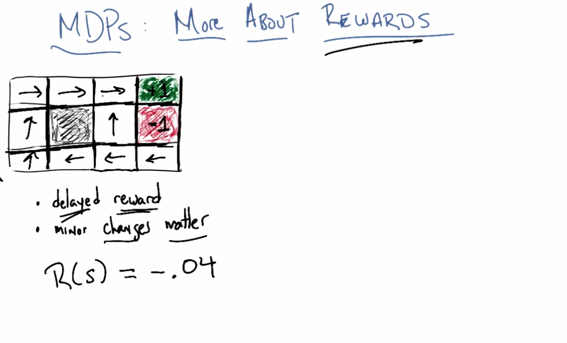 MDPs: More About Rewards
→ → → +1
↑ ↑ -1
↑ ← ← ←
• delayed reward
• minor changes matter
R(s) = -.04